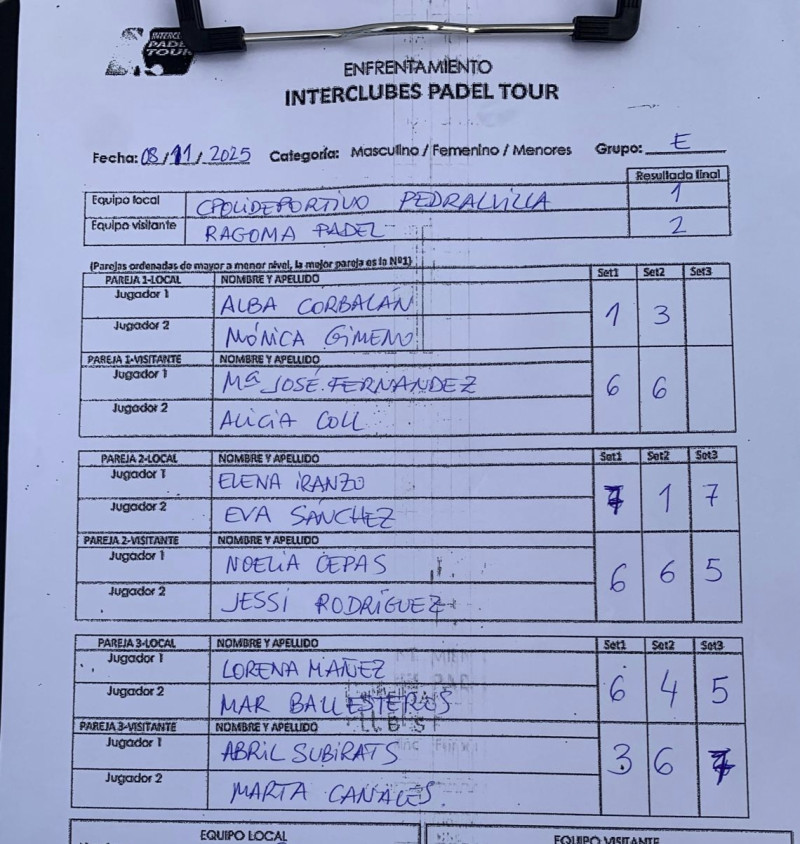 INTERCL
PADE
TOUR
ENFRENTAMIENTO
INTERCLUBES PADEL TOUR
Fecha: 08/11/2025 Categoría: Masculino / Femenino / Menores Grupo: E
Resultado final
Equipo local CPOLIDEPORTIVO PEDRALVILLA 1
Equipo visitante RAGOMA PADEL 2
(Parejas ordenadas de mayor a menor nivel, la mejor pareja es la Nº1)
PAREJA 1-LOCAL NOMBRE Y APELLIDO Set1 Set2 Set3
Jugador 1 ALBA CORBALÁN
1 3
Jugador 2 MÓNICA GIMENO
PAREJA 1-VISITANTE NOMBRE Y APELLIDO
Jugador 1 Mª JOSÉ FERNANDEZ
6 6
Jugador 2 ALICIA COLL
PAREJA 2-LOCAL NOMBRE Y APELLIDO Set1 Set2 Set3
Jugador 1 ELENA IRANZO
7 1 7
Jugador 2 EVA SÁNCHEZ
PAREJA 2-VISITANTE NOMBRE Y APELLIDO
Jugador 1 NOELIA CEPAS
6 6 5
Jugador 2 JESSI RODRÍGUEZ
PAREJA 3-LOCAL NOMBRE Y APELLIDO Set1 Set2 Set3
Jugador 1 LORENA MAÑEZ
6 4 5
Jugador 2 MAR BALLESTEROS
PAREJA 3-VISITANTE NOMBRE Y APELLIDO
Jugador 1 ABRIL SUBIRATS
3 6 7
Jugador 2 MARTA CANALES
EQUIPO LOCAL EQUIPO VISITANTE